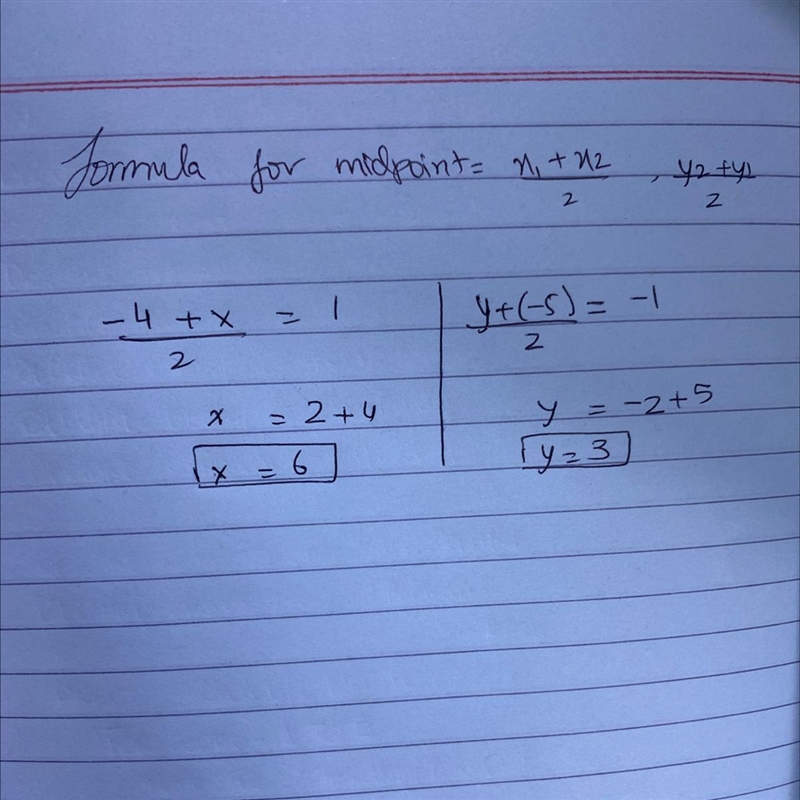 Formula for midpoint = x₁ + x2 / 2 , y2 + y1 / 2
-4 + x / 2 = 1
x = 2 + 4
x = 6
y + (-5) / 2 = -1
y = -2 + 5
y = 3